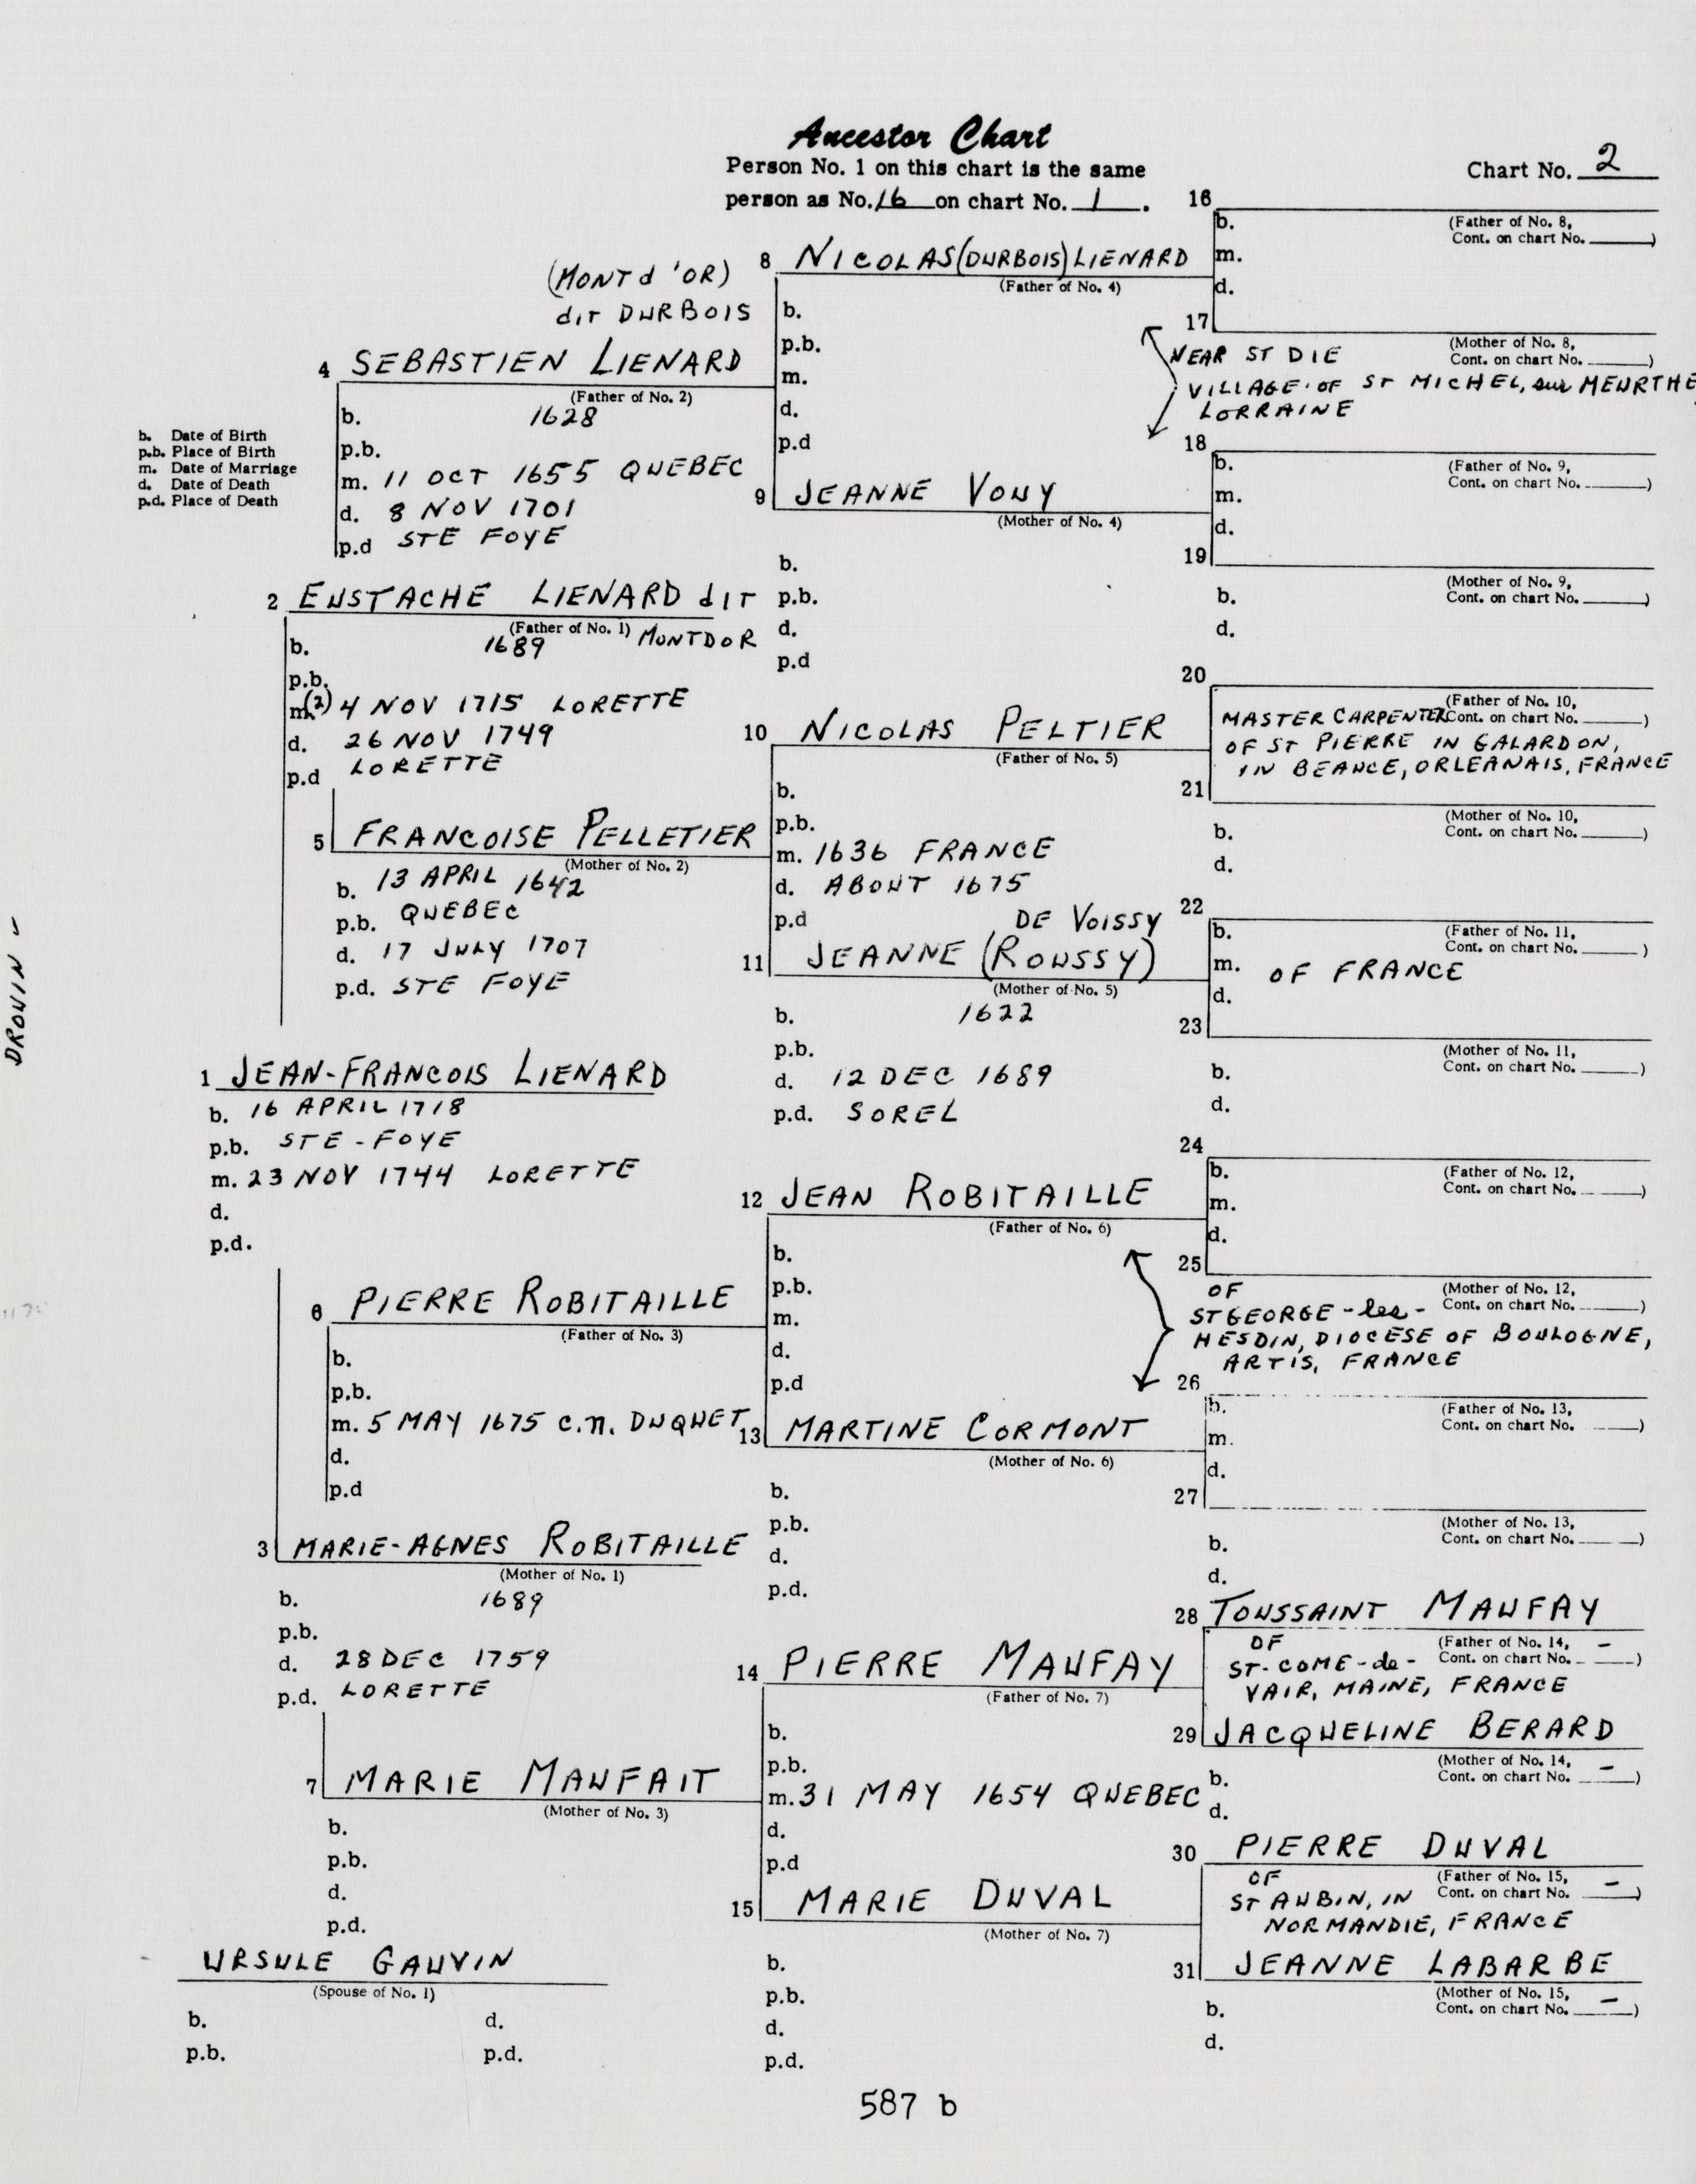 Ancestor Chart
Person No. 1 on this chart is the same
person as No. 16 on chart No. 1.
Chart No. 2
b. Date of Birth
p.b. Place of Birth
m. Date of Marriage
d. Date of Death
p.d. Place of Death
DROUIN -
1 JEAN-FRANCOIS LIENARD
b. 16 APRIL 1718
p.b. STE-FOYE
m. 23 NOV 1744 LORETTE
d.
p.d.
2 EUSTACHE LIENARD dIT
(Father of No. 1) MONTDOR
b. 1689
p.b.
m. (2) 4 NOV 1715 LORETTE
d. 26 NOV 1749
p.d LORETTE
3 MARIE-AGNES ROBITAILLE
(Mother of No. 1)
b. 1689
p.b.
d. 28 DEC 1759
p.d. LORETTE
URSULE GAUVIN
(Spouse of No. 1)
b. d.
p.b. p.d.
(MONT d'OR)
dit DURBOIS
4 SEBASTIEN LIENARD
(Father of No. 2)
b. 1628
p.b.
m. 11 OCT 1655 QUEBEC
d. 8 NOV 1701
p.d STE FOYE
5 FRANCOISE PELLETIER
(Mother of No. 2)
b. 13 APRIL 1642
p.b. QUEBEC
d. 17 JULY 1707
p.d. STE FOYE
6 PIERRE ROBITAILLE
(Father of No. 3)
b.
p.b.
m. 5 MAY 1675 c.n. DUQUET
d.
p.d
7 MARIE MAUFAIT
(Mother of No. 3)
b.
p.b.
d.
p.d.
8 NICOLAS (DURBOIS) LIENARD
(Father of No. 4)
b.
p.b.
m.
d.
p.d
9 JEANNE VOUY
(Mother of No. 4)
b.
p.b.
d.
p.d
10 NICOLAS PELTIER
(Father of No. 5)
b.
p.b.
m. 1636 FRANCE
d. ABOUT 1675
p.d
DE VOISSY
11 JEANNE (ROUSSY)
(Mother of No. 5)
b. 1622
p.b.
d. 12 DEC 1689
p.d. SOREL
12 JEAN ROBITAILLE
(Father of No. 6)
b.
p.b.
m.
d.
p.d
13 MARTINE CORMONT
(Mother of No. 6)
b.
p.b.
d.
p.d.
14 PIERRE MAUFAY
(Father of No. 7)
b.
p.b.
m. 31 MAY 1654 QUEBEC
d.
p.d
15 MARIE DUVAL
(Mother of No. 7)
b.
p.b.
d.
p.d.
16
b. (Father of No. 8,
Cont. on chart No. )
m.
d.
17
(Mother of No. 8,
Cont. on chart No. )
NEAR ST DIE
VILLAGE OF ST MICHEL, sur MEURTHE
LORRAINE
18
b. (Father of No. 9,
Cont. on chart No. )
m.
d.
19
(Mother of No. 9,
Cont. on chart No. )
b.
d.
20
(Father of No. 10,
Cont. on chart No. )
MASTER CARPENTER
OF ST PIERRE IN GALARDON,
IN BEANCE, ORLEANAIS, FRANCE
21
(Mother of No. 10,
Cont. on chart No. )
b.
d.
22
b. (Father of No. 11,
Cont. on chart No. )
m. OF FRANCE
d.
23
(Mother of No. 11,
Cont. on chart No. )
b.
d.
24
b. (Father of No. 12,
Cont. on chart No. )
m.
d.
25
(Mother of No. 12,
Cont. on chart No. )
OF
ST GEORGE-les-
HESDIN, DIOCESE OF BOULOGNE,
ARTIS, FRANCE
26
b. (Father of No. 13,
Cont. on chart No. )
m.
d.
27
(Mother of No. 13,
Cont. on chart No. )
b.
d.
28 TOUSSAINT MAUFAY
(Father of No. 14,
Cont. on chart No. - )
OF
ST-COME-de-
VAIR, MAINE, FRANCE
29 JACQUELINE BERARD
(Mother of No. 14,
Cont. on chart No. - )
b.
d.
30 PIERRE DUVAL
(Father of No. 15,
Cont. on chart No. - )
OF
ST AUBIN, IN
NORMANDIE, FRANCE
31 JEANNE LABARBE
(Mother of No. 15,
Cont. on chart No. - )
b.
d.
587 b